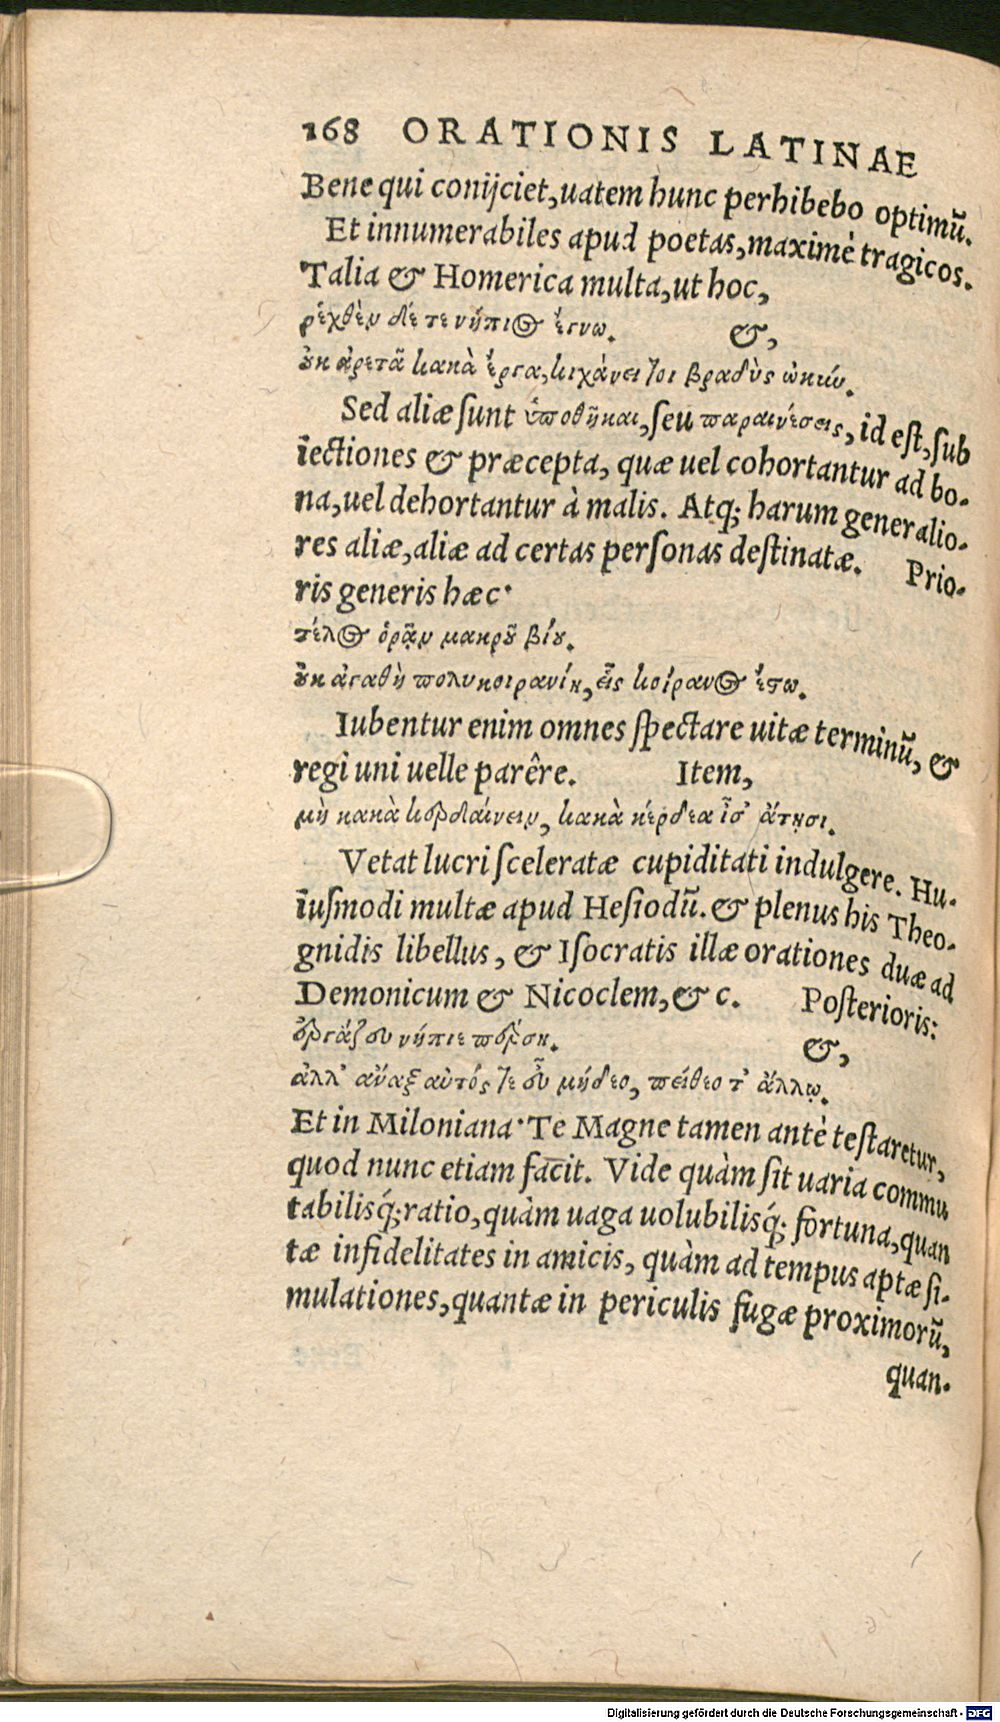 168 ORATIONIS LATINAE
Bene qui conijciet, uatem hunc perhibebo optimũ.
Et innumerabiles apud poetas, maximè tragicos.
Talia & Homerica multa, ut hoc,
ῥεχθὲν δέ τε νήπιος ἔγνω. &,
οὐκ ἀρετᾷ κακὰ ἔργα, κιχάνει τοι βραδὺς ὠκύν.
Sed aliæ sunt ὑποθῆκαι, seu παραινέσεις, id est, sub
iectiones & præcepta, quæ uel cohortantur ad bo-
na, uel dehortantur à malis. Atq; harum generalio-
res aliæ, aliæ ad certas personas destinatæ. Prio-
ris generis hæc·
τέλος ὁρᾷν μακροῦ βίου.
οὐκ ἀγαθὴ πολυκοιρανίη, εἷς κοίρανος ἔστω.
Iubentur enim omnes spectare uitæ terminũ, &
regi uni uelle parêre. Item,
μὴ κακὰ κερδαίνειν, κακὰ κέρδεα ἶσ' ἄτῃσι.
Vetat lucri sceleratæ cupiditati indulgere. Hu-
iusmodi multæ apud Hesiodũ. & plenus his Theo-
gnidis libellus, & Isocratis illæ orationes duæ ad
Demonicum & Nicoclem, & c. Posterioris:
ἐργάζου νήπιε πέρση. &,
ἀλλ' ἄναξ αὐτός τε εὖ μήδεο, πείθεο τ' ἄλλῳ.
Et in Miloniana· Te Magne tamen antè testaretur,
quod nunc etiam facit. Vide quàm sit uaria commu
tabilisq́; ratio, quàm uaga uolubilisq́; fortuna, quan
tæ infidelitates in amicis, quàm ad tempus aptæ si-
mulationes, quantæ in periculis fugæ proximorũ,
quan-
Digitalisierung gefördert durch die Deutsche Forschungsgemeinschaft - DFG